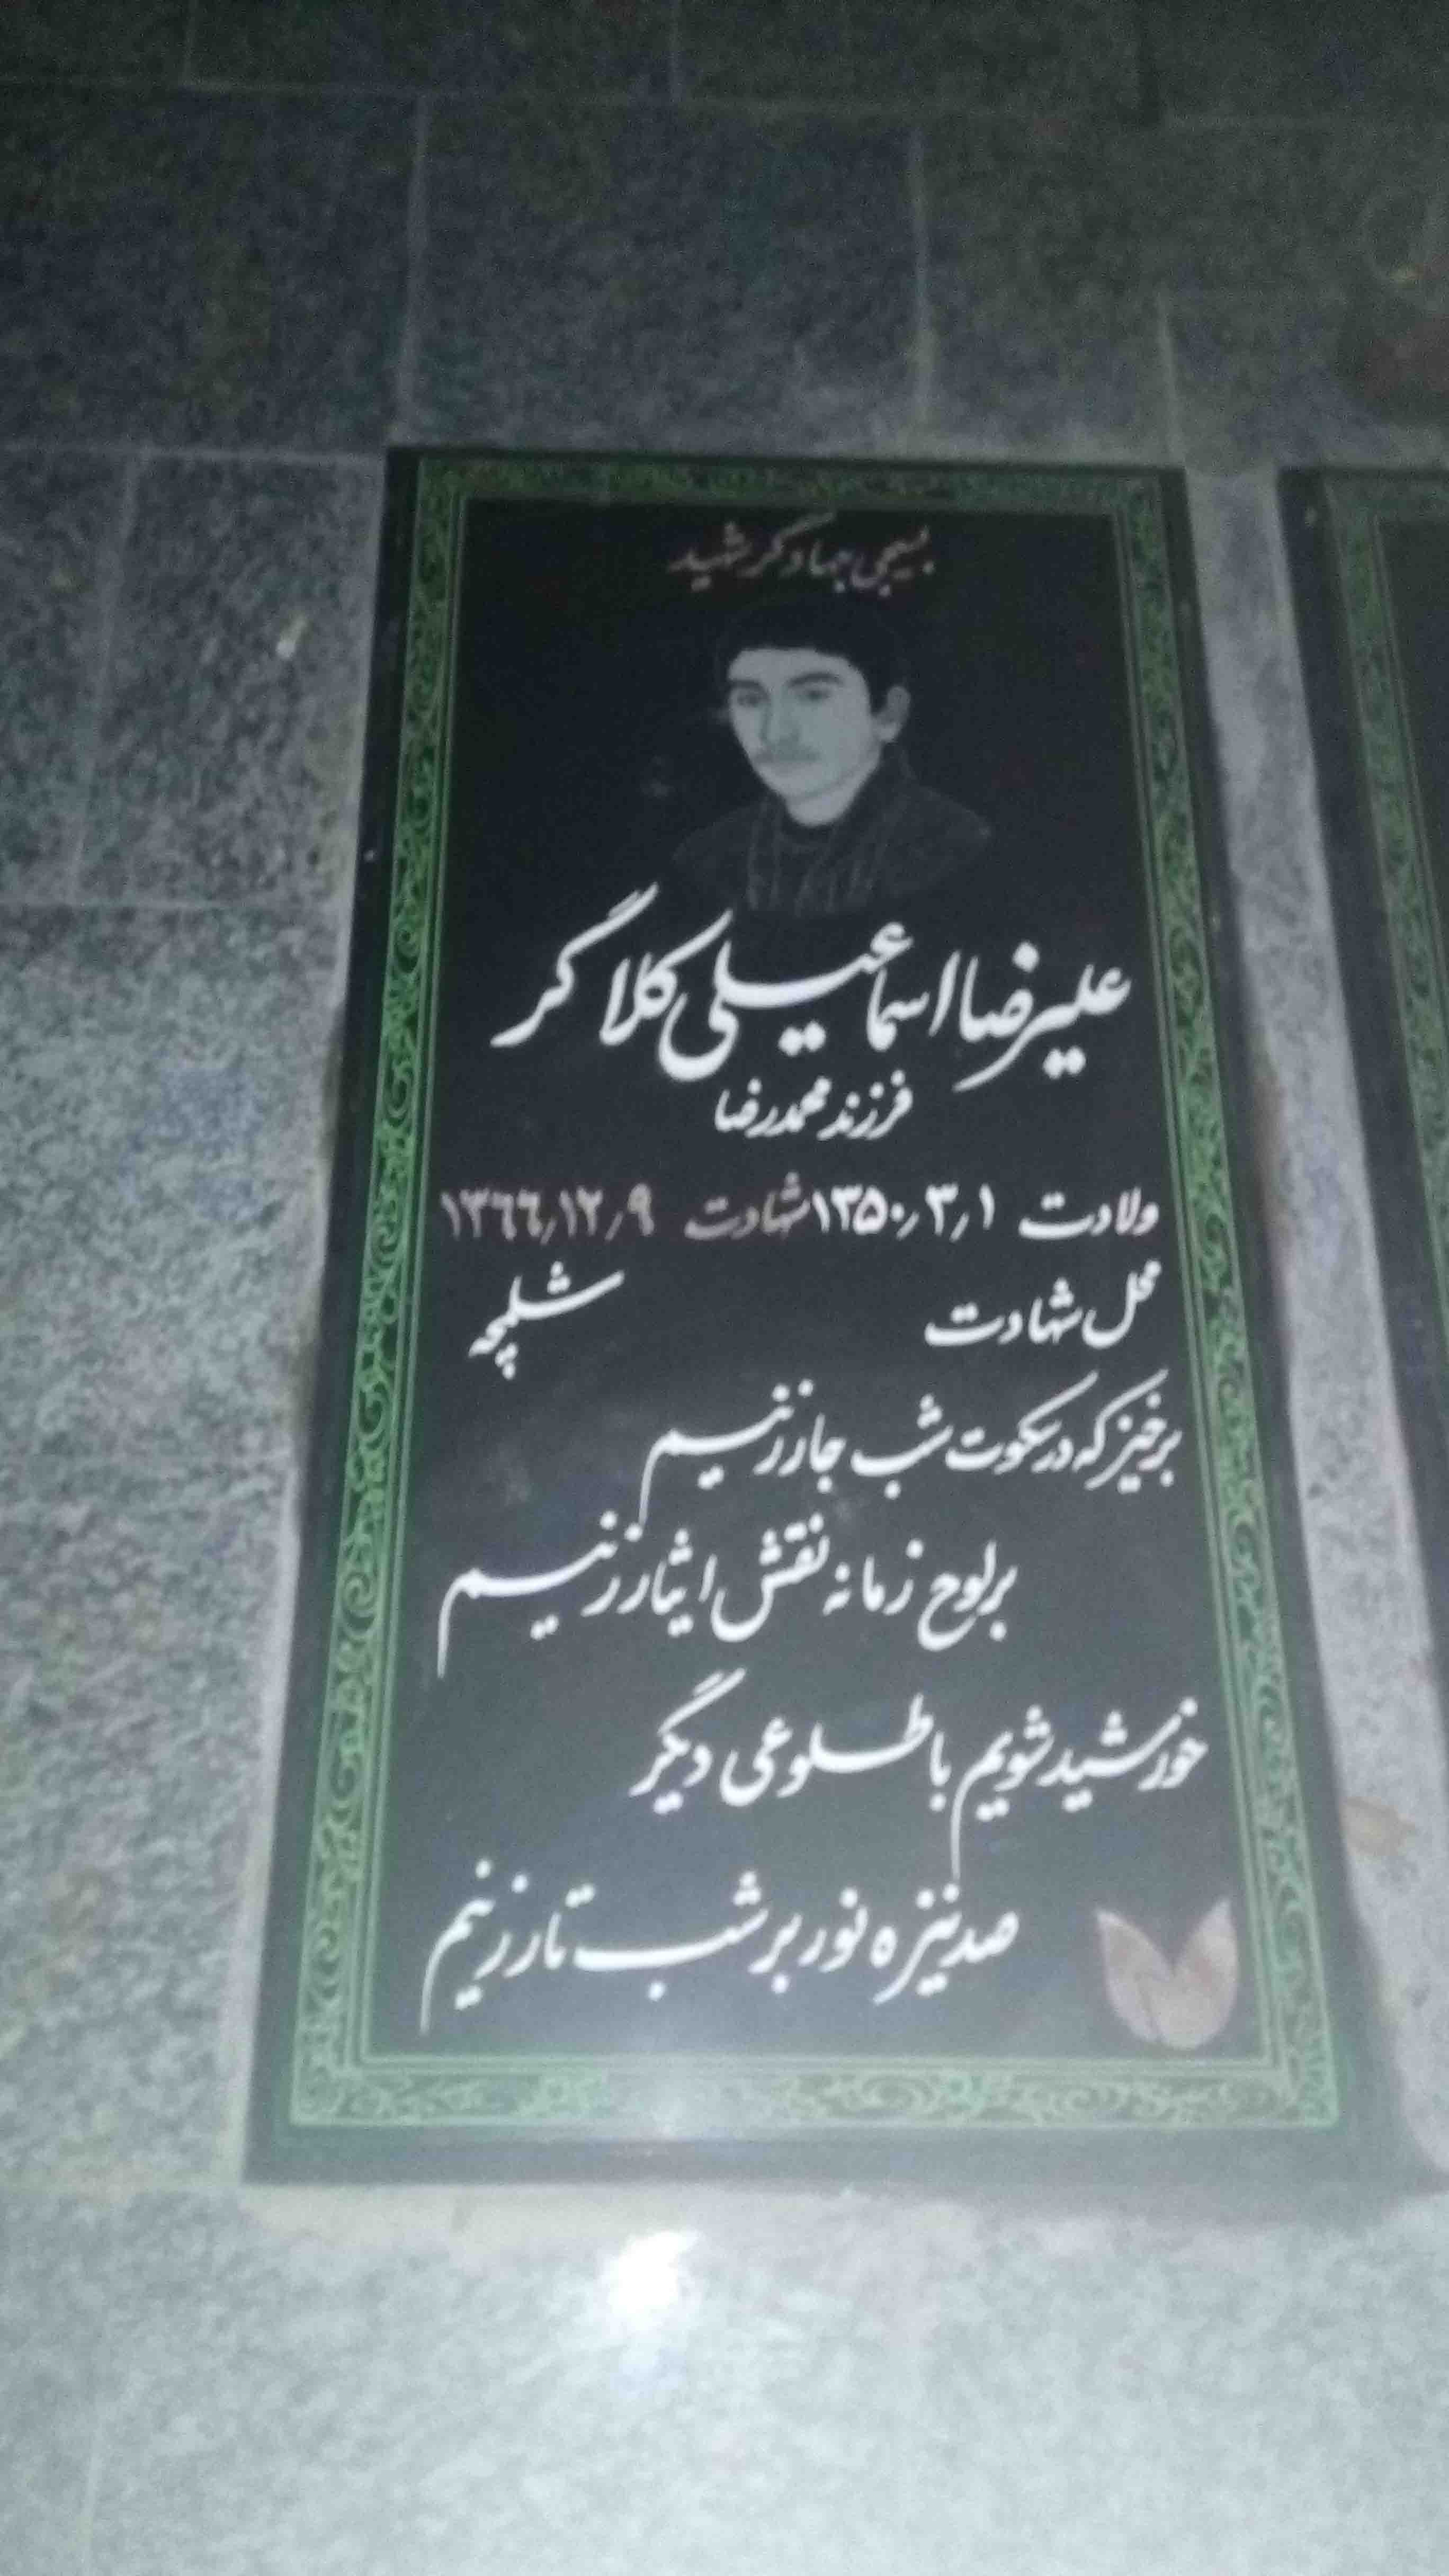 بسیجی جهادگر شهید
علیرضا اسماعیلی کلاگر
فرزند محمدرضا
ولادت ۱۳۵۰٫۳٫۱ شهادت ۱۳٦٦٫۱۲٫۹
محل شهادت شلمچه
برخیز که در سکوت شب جار زنیم
بر لوح زمانه نقش ایثار زنیم
خورشید شویم با طلوعی دیگر
صد نیزه نور بر شب تار زنیم